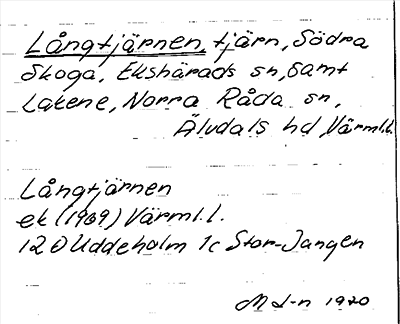 Långtjärnen, tjärn, Södra
Skoga, Ekshärads sn, samt
Lakene, Norra Råda sn,
Älvdals hd, Värml.l.
Långtjärnen
ek (1969) Värml.l.
12 D Uddeholm 1c Stor-Jangen
M L-n 1970